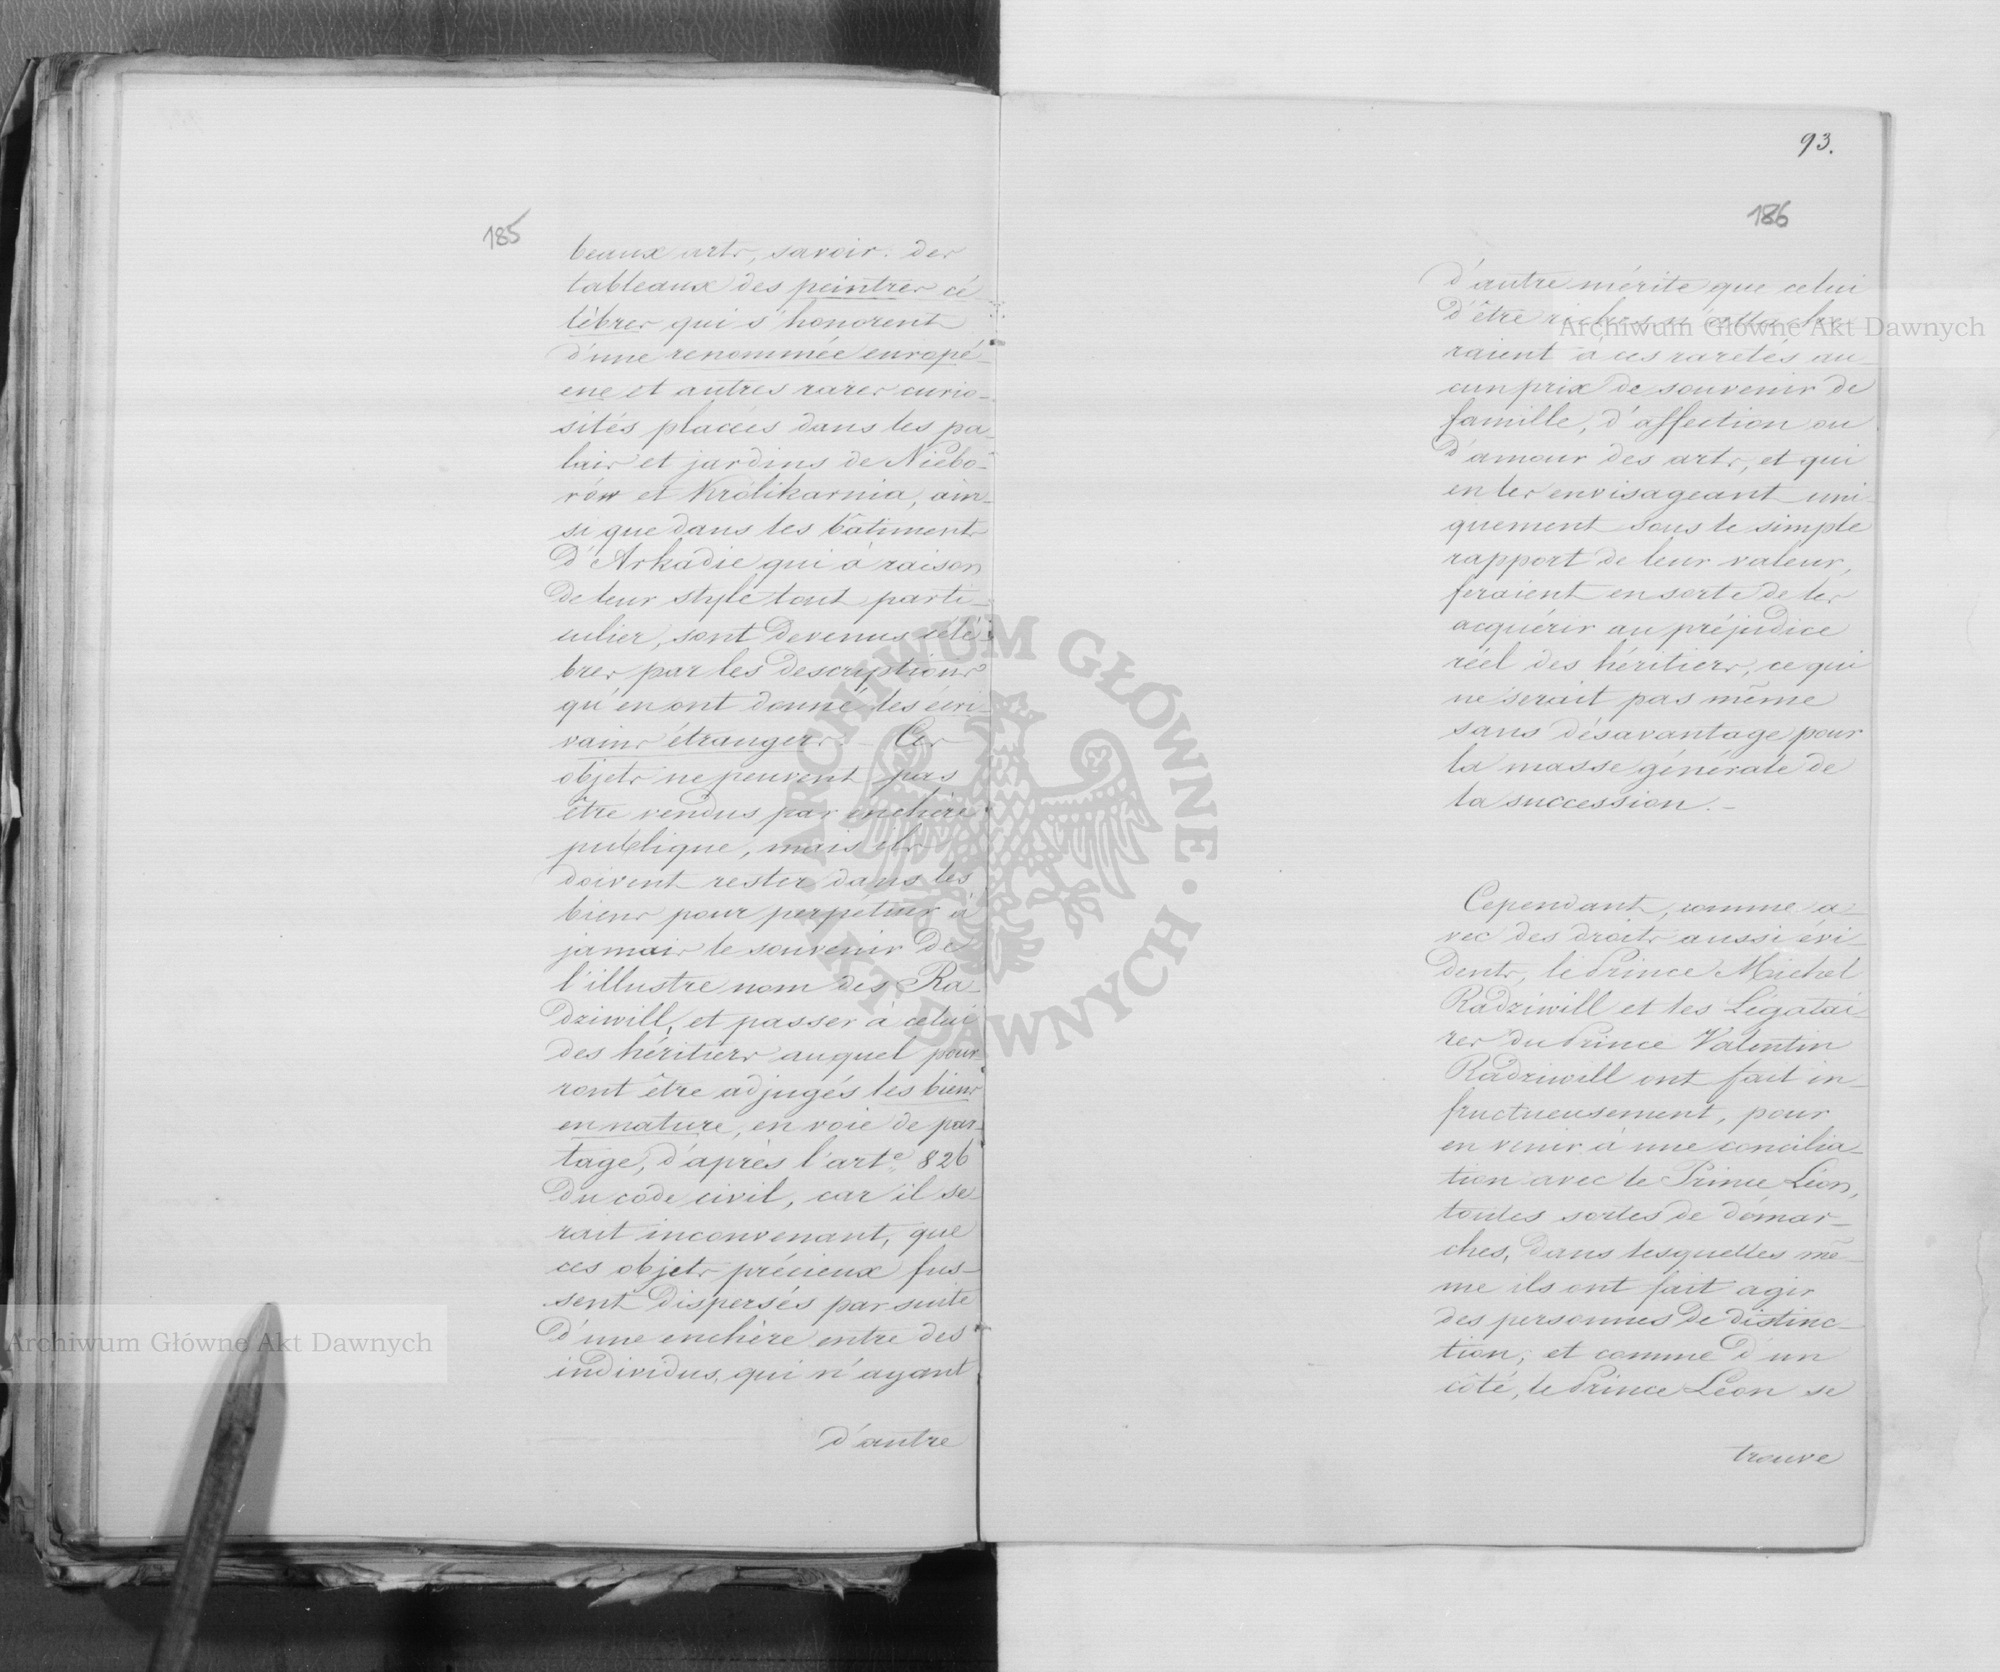 185
beaux arts, savoir: des
tableaux des peintres cé
lèbres qui s'honorent
d'une renommée europé-
ene et autres rares curio-
sités placées dans les pa-
lais et jardins de Niebo-
rów et Królikarnia, ain-
si que dans les bâtiments
d'Arkadie qui à raison
de leur style tout parti-
culier, sont devenus célè-
bres par les descriptions
qu'en ont donné les écri-
vains étrangers. – Ces
objets ne peuvent pas
être vendus par enchère
publique, mais ils
doivent rester dans les
biens pour perpétuer à
jamais le souvenir de
l'illustre nom des Ra-
dziwill, et passer à celui
des héritiers auquel pour-
ront être adjugés les biens
en nature, en voie de par-
tage, d'après l'arte 826
du code civil, car il se-
rait inconvenant, que
ces objets précieux fus-
sent dispersés par suite
d'une enchère entre des
individus, qui n'ayant
d'autre
93.
186
d'autre mérite que celui
d'être riches n'attache-
raient à ces raretés au
cun prix de souvenir de
famille, d'affection ou
d'amour des arts, et qui
en les envisageant uni
quement sous le simple
rapport de leur valeur,
feraient en sorte de les
acquérir au préjudice
réel des héritiers, ce qui
ne serait pas même
sans désavantage pour
la masse générale de
la succession. –
Cependant, comme a-
vec des droits aussi évi-
dents, le Prince Michel
Radziwill et les Légatai-
res du Prince Valentin
Radziwill ont fait in-
fructueusement, pour
en venir à une concilia-
tion avec le Prince Léon,
toutes sortes de démar-
ches, dans lesquelles mê-
me ils ont fait agir
des personnes de distinc-
tion, et comme d'un
côté, le Prince Léon se
trouve
Archiwum Główne Akt Dawnych
Archiwum Główne Akt Dawnych
ARCHIWUM GŁÓWNE · AKT DAWNYCH ·